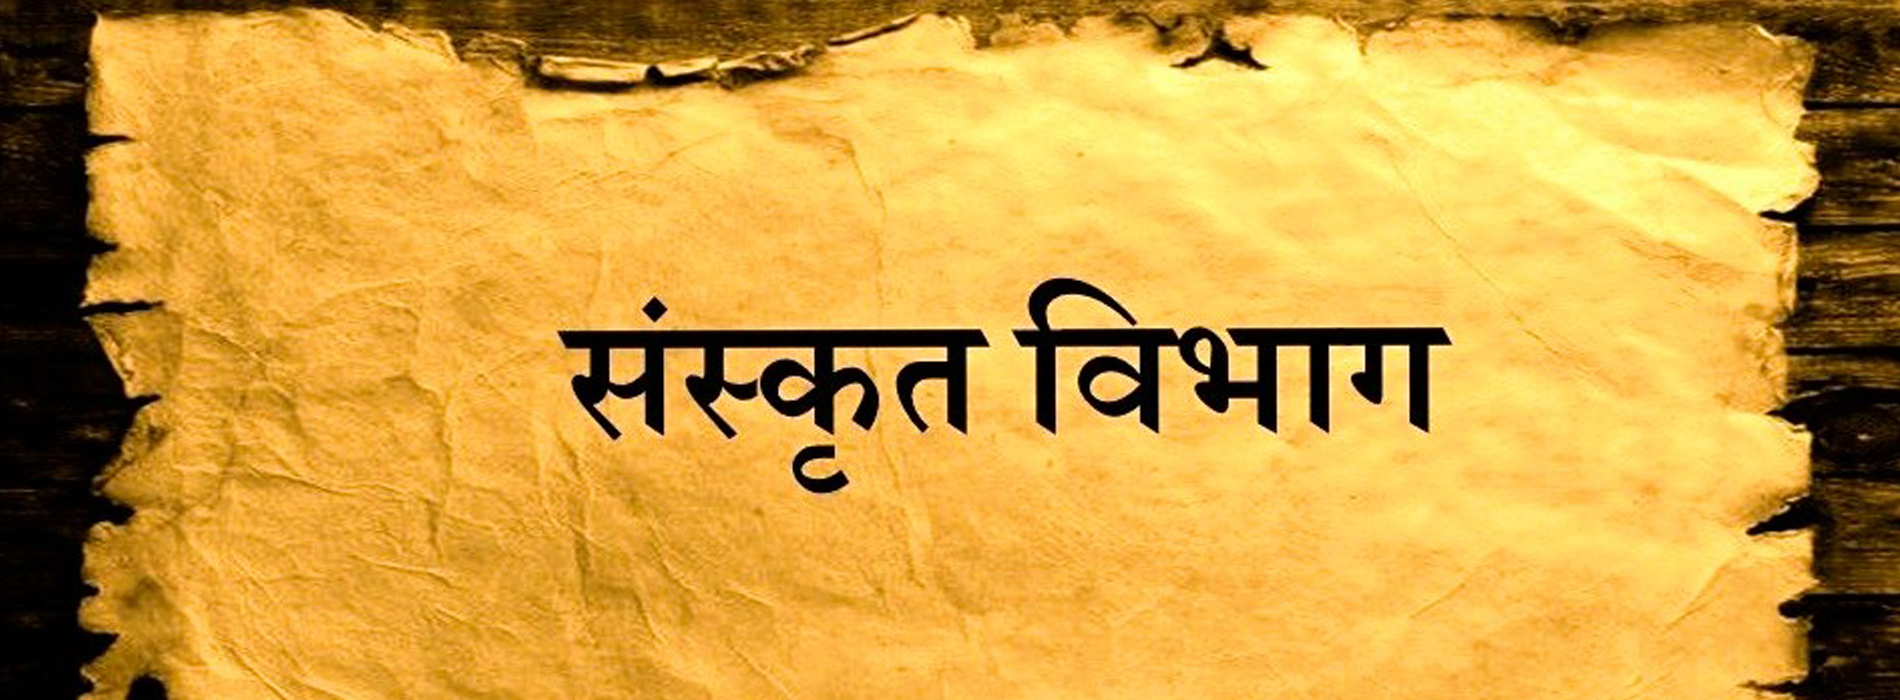 संस्कृत विभाग